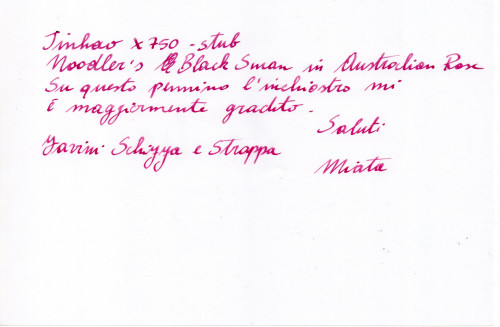 Jinhao x750 - stub
Noodler's Black Swan in Australian Rose
Su questo pennino l'inchiostro mi
è maggiormente gradito.
Saluti
Schizza e Strappa
Miata